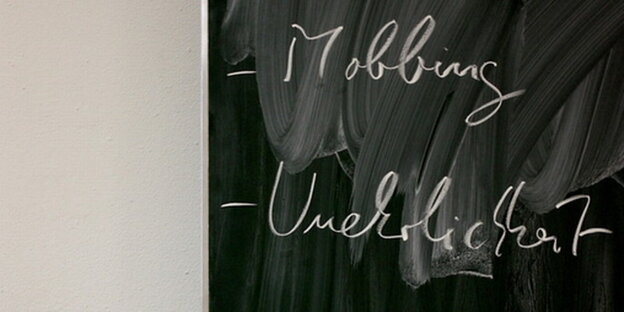 - Mobbing
- Unehrlichkeit